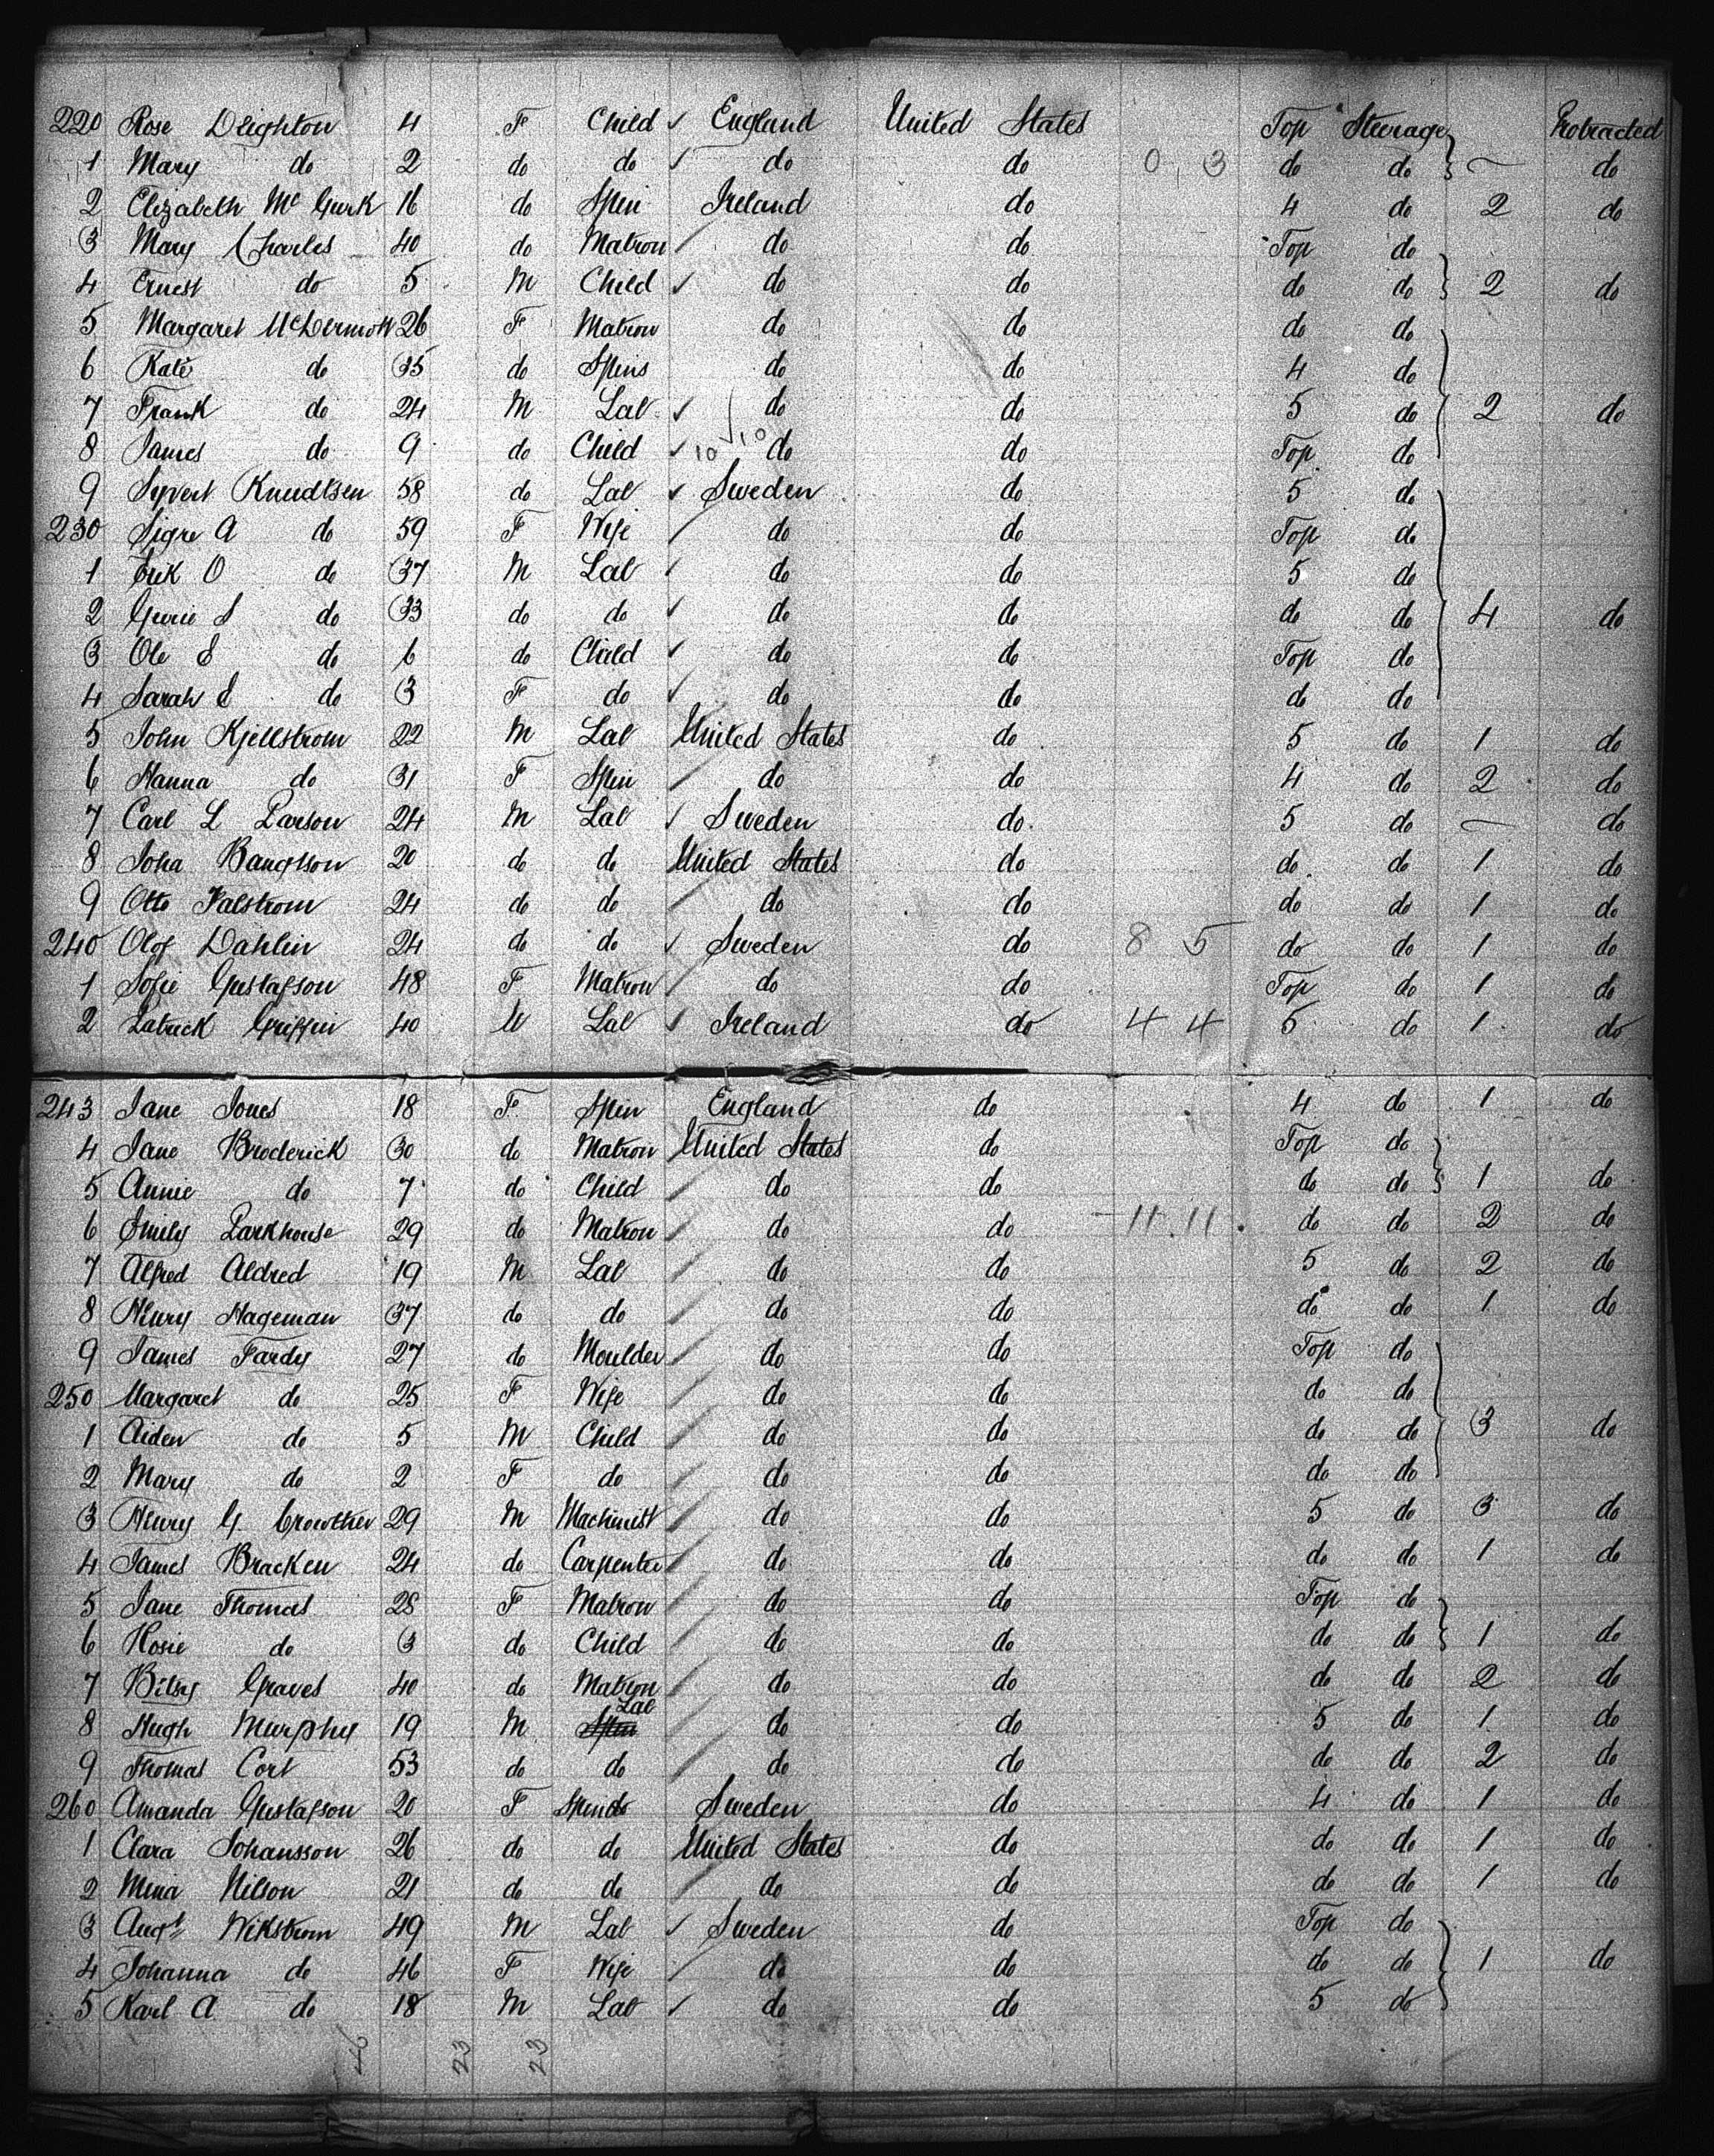 220 Rose Deighton 4 F Child ✓ England United States Top Steerage Protracted
1 Mary do 2 do do ✓ do do 0 3 do do — do
2 Elizabeth Mc Gurk 16 do Spin Ireland do 4 do 2 do
3 Mary Charles 40 do Matron / do do Top do
4 Ernest do 5 M Child ✓ do do do do 2 do
5 Margaret McDermott 26 F Matron do do do do
6 Kate do 35 do Spins do do 4 do
7 Frank do 24 M Lab ✓ do do 5 do 2 do
8 James do 9 do Child ✓ 10 10 do do Top do
9 Syvert Knudtsen 58 do Lab ✓ Sweden do 5 do
230 Sigre A do 59 F Wife / do do Top do
1 Erik O do 37 M Lab ✓ do do 5 do
2 Gurie S do 33 do do ✓ do do do do 4 do
3 Ole S do 6 do Child ✓ do do Top do
4 Sarah S do 3 F do ✓ do do do do
5 John Kjellstrom 22 M Lab United States do 5 do 1 do
6 Hanna do 31 F Spin / do do 4 do 2 do
7 Carl L Larson 24 M Lab ✓ Sweden do 5 do — do
8 Joha Bangtson 20 do do United States do do do 1 do
9 Otto Falstrom 24 do do / do do do do 1 do
240 Olof Dahlin 24 do do ✓ Sweden do 8 5 do do 1 do
1 Sofie Gustafson 48 F Matron / do do Top do 1 do
2 Patrick Griffin 40 M Lab ✓ Ireland do 4 4 5 do 1 do
243 Jane Jones 18 F Spin England do 4 do 1 do
4 Jane Broderick 30 do Matron United States do Top do
5 Annie do 7 do Child / do do do do 1 do
6 Emily Parkhouse 29 do Matron / do do 11 11 do do 2 do
7 Alfred Aldred 19 M Lab / do do 5 do 2 do
8 Henry Hageman 37 do do / do do do do 1 do
9 James Fardy 27 do Moulder / do do Top do
250 Margaret do 25 F Wife / do do do do
1 Aiden do 5 M Child / do do do do 3 do
2 Mary do 2 F do / do do do do
3 Henry G. Crowther 29 M Machinist / do do 5 do 3 do
4 James Bracken 24 do Carpenter / do do do do 1 do
5 Jane Thomas 28 F Matron / do do Top do
6 Rosie do 3 do Child / do do do do 1 do
7 Betsy Graves 40 do Matron / do do do do 2 do
8 Hugh Murphy 19 M Spin Lab / do do 5 do 1 do
9 Thomas Cort 53 do do / do do do do 2 do
260 Amanda Gustafson 20 F Spin Sweden do 4 do 1 do
1 Clara Johansson 26 do do United States do do do 1 do
2 Mina Nilson 21 do do / do do do do 1 do
3 Augt Wikstrom 49 M Lab ✓ Sweden do Top do
4 Johanna do 46 F Wife / do do do do 1 do
5 Karl A do 18 M Lab ✓ do do 5 do
46 23 23